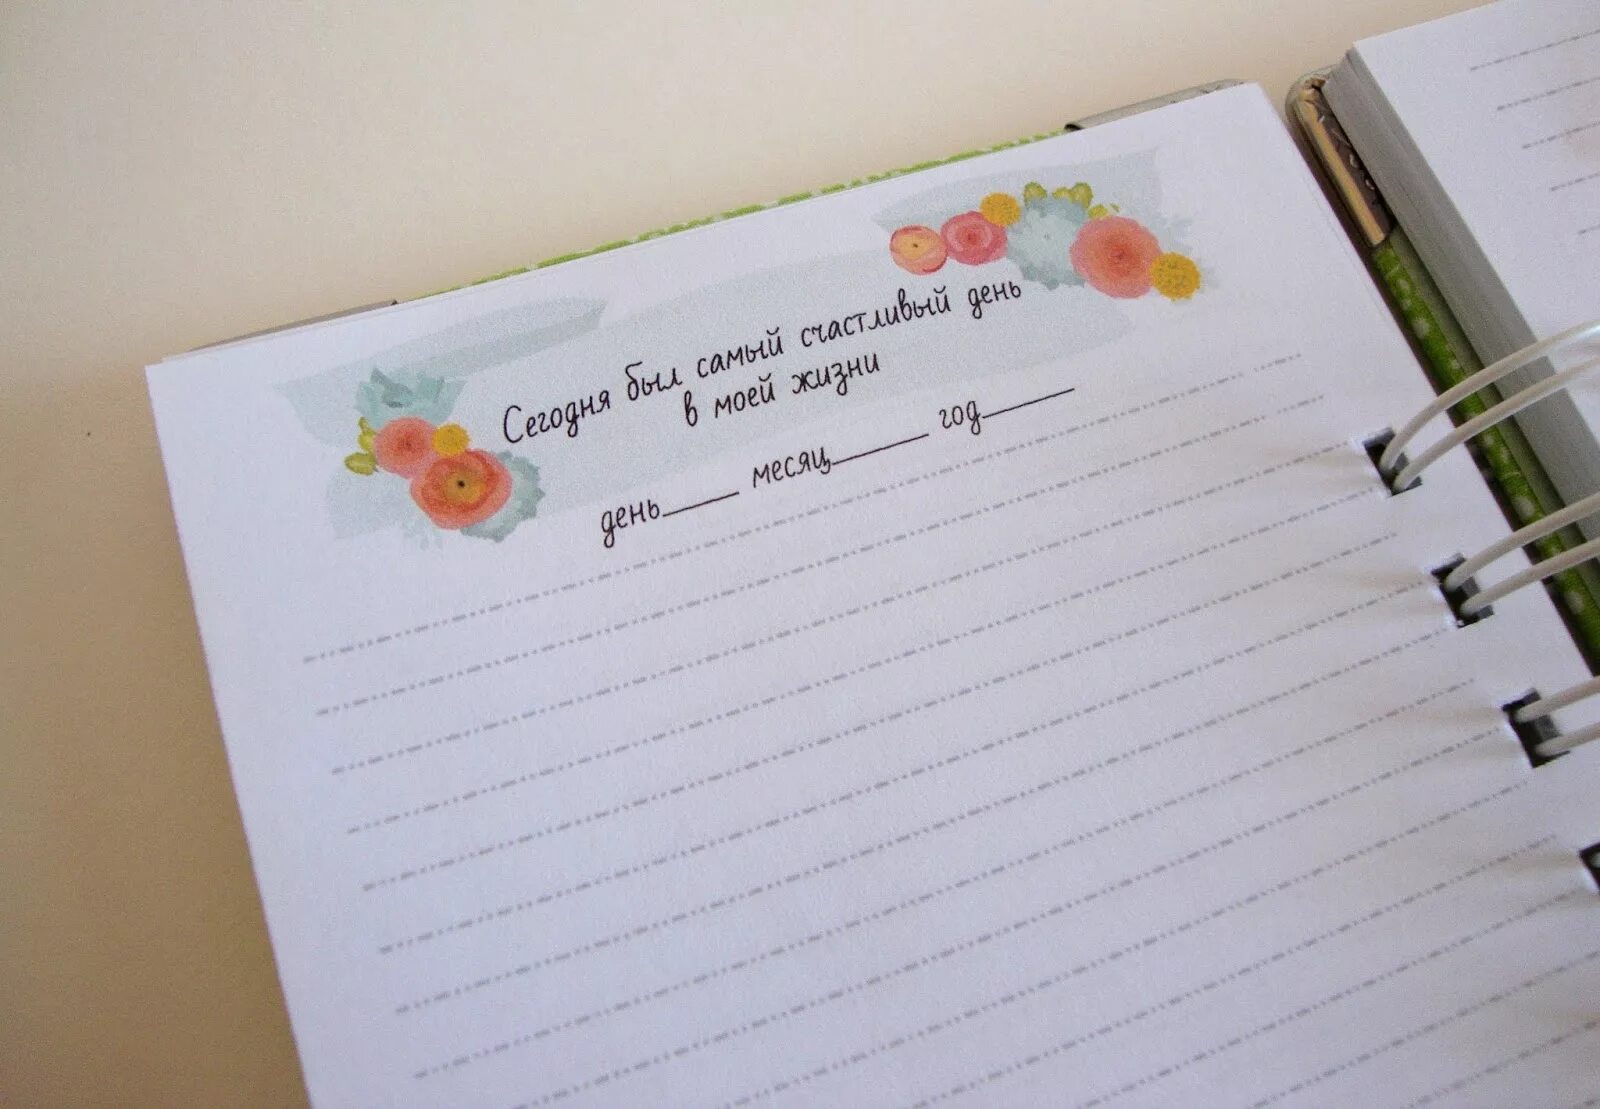 Сегодня был самый счастливый день
в моей жизни
день____ месяц_____ год_____